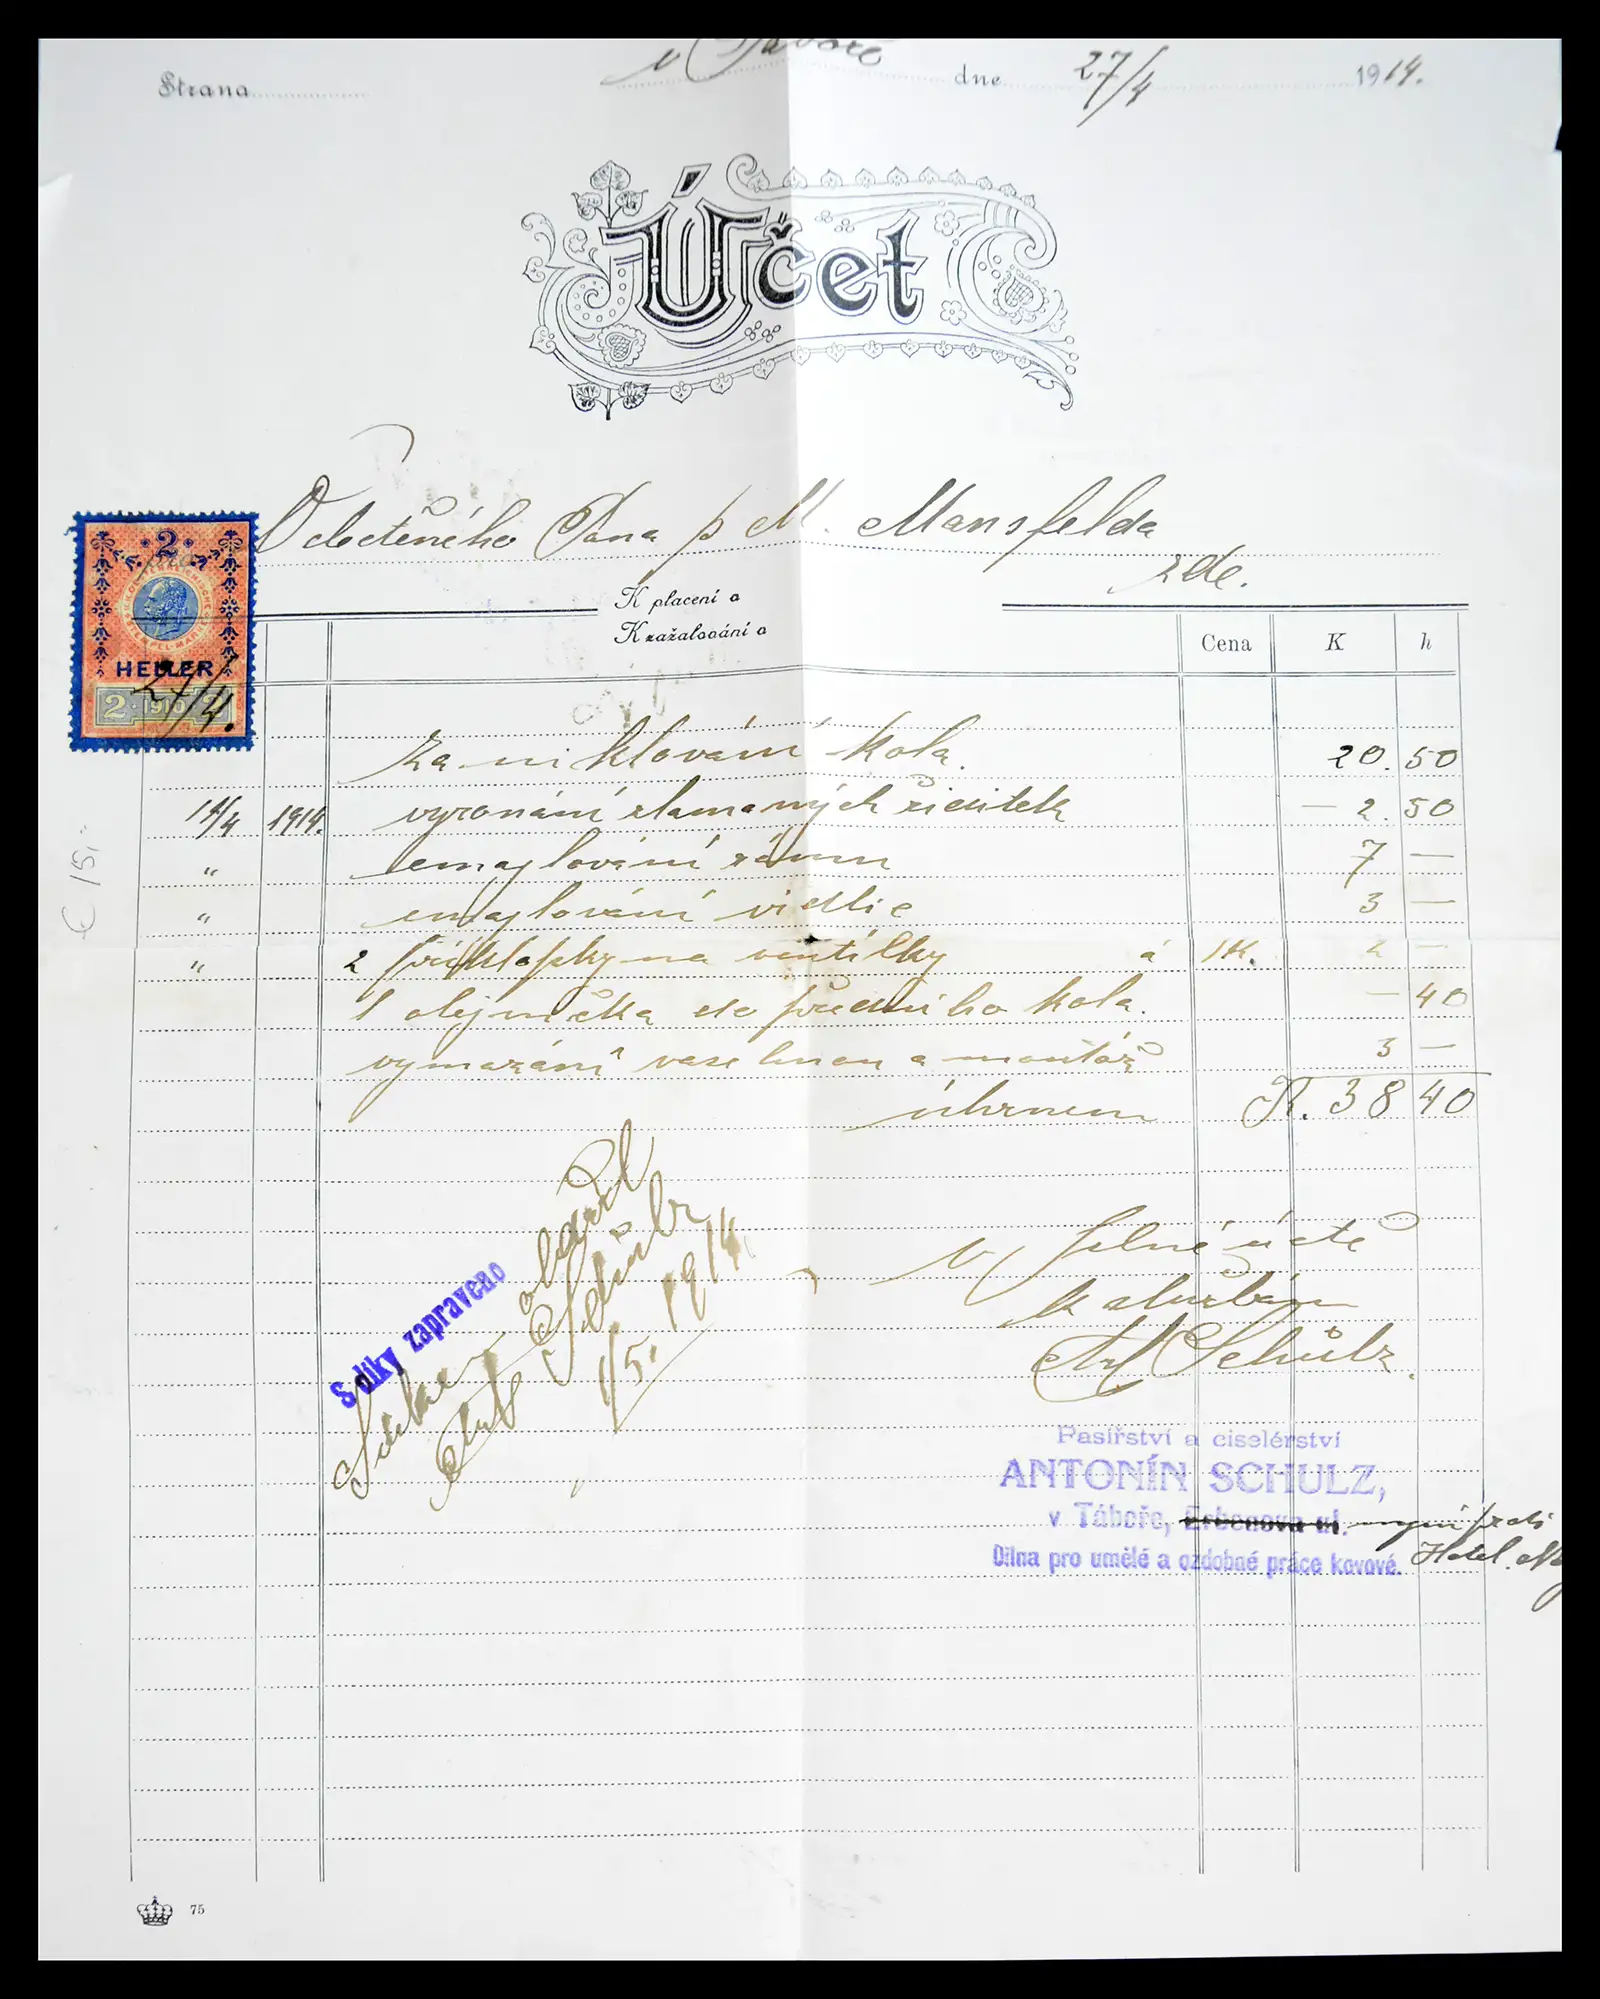 v Táboře dne 27/4 1914.
Strana
Účet
Ctěného Pána p M. Mansfelda
zde.
K placení a
K zažalování a
Cena K h
2
HELLER
27/4.
2 1910 2
za niklování kola. 20. 50
14/4 1914. vyrovnání zlamaných řiditek — 2. 50
" emajlování rámu 7 —
" emajlování vidlic 3 —
" 2 příklopky na ventilky á 1K. 2 —
1 olejnička do předního kola. — 40
vymazání vaselinou a montáž 3 —
úhrnem K. 38 40
€ 15,-
v plné úctě
Ant Schülz.
S díky zapraveno
obdržel
Ant Schülz
1/5. 1914.
Pasířství a ciselérství
ANTONÍN SCHULZ,
v Táboře, Erbenova ul. nyní proti
Dílna pro umělé a ozdobné práce kovové. Hotel.
75